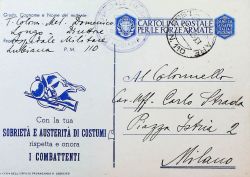 Grado, Cognome e Nome del mittente
T. Colon. Med. Domenico
Longo Direttore
Ospedale Militare
Lubiana P. M. 110
CARTOLINA POSTALE
PER LE FORZE ARMATE
Al Colonnello
Cav. Uff. Carlo Strada
Piazza Istria 2
Milano
Con la tua
SOBRIETÀ E AUSTERITÀ DI COSTUMI
rispetta e onora
I COMBATTENTI